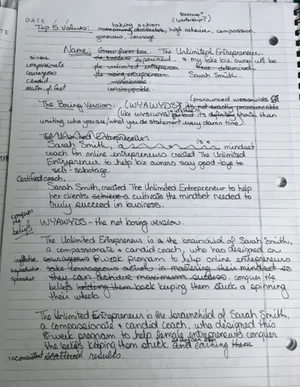 DATE
success
(leadership?)
Top 5 Values: taking action
high achiever, compassion
generous, courage
Name: The Unlimited Entrepreneur.
Sarah Smith
sincere
compassionate
courageous
candid
unstoppable
The Boring Version. (WYAWYDS)
(like unsung) but its definitely than
writing who you are/what you do statement every damn time).
The Unlimited Entrepreneur:
Sarah Smith, a mindset
coach for online entrepreneurs created The Unlimited
Entrepreneur to help biz owners say good-bye to
self-sabotage.
Certified coach,
Sarah Smith, created The Unlimited Entrepreneur to help
her clients achieve & cultivate the mindset needed to
truly succeed in business.
conquer
beliefs
WYAWYDS – the not boring version.
The Unlimited Entrepreneur is the brainchild of Sarah Smith,
a compassionate & candid coach, who has designed an
8-week program to help online entrepreneurs
take courageous action in mastering their mindset so
they can achieve maximum success. conquer the
beliefs holding them back keeping them stuck & spinning
their wheels.
The Unlimited Entrepreneur is the brainchild of Sarah Smith,
a compassionate & candid coach, who designed this
8-week program to help female entrepreneurs conquer
the beliefs keeping them stuck and earning them
inconsistent scattered results.